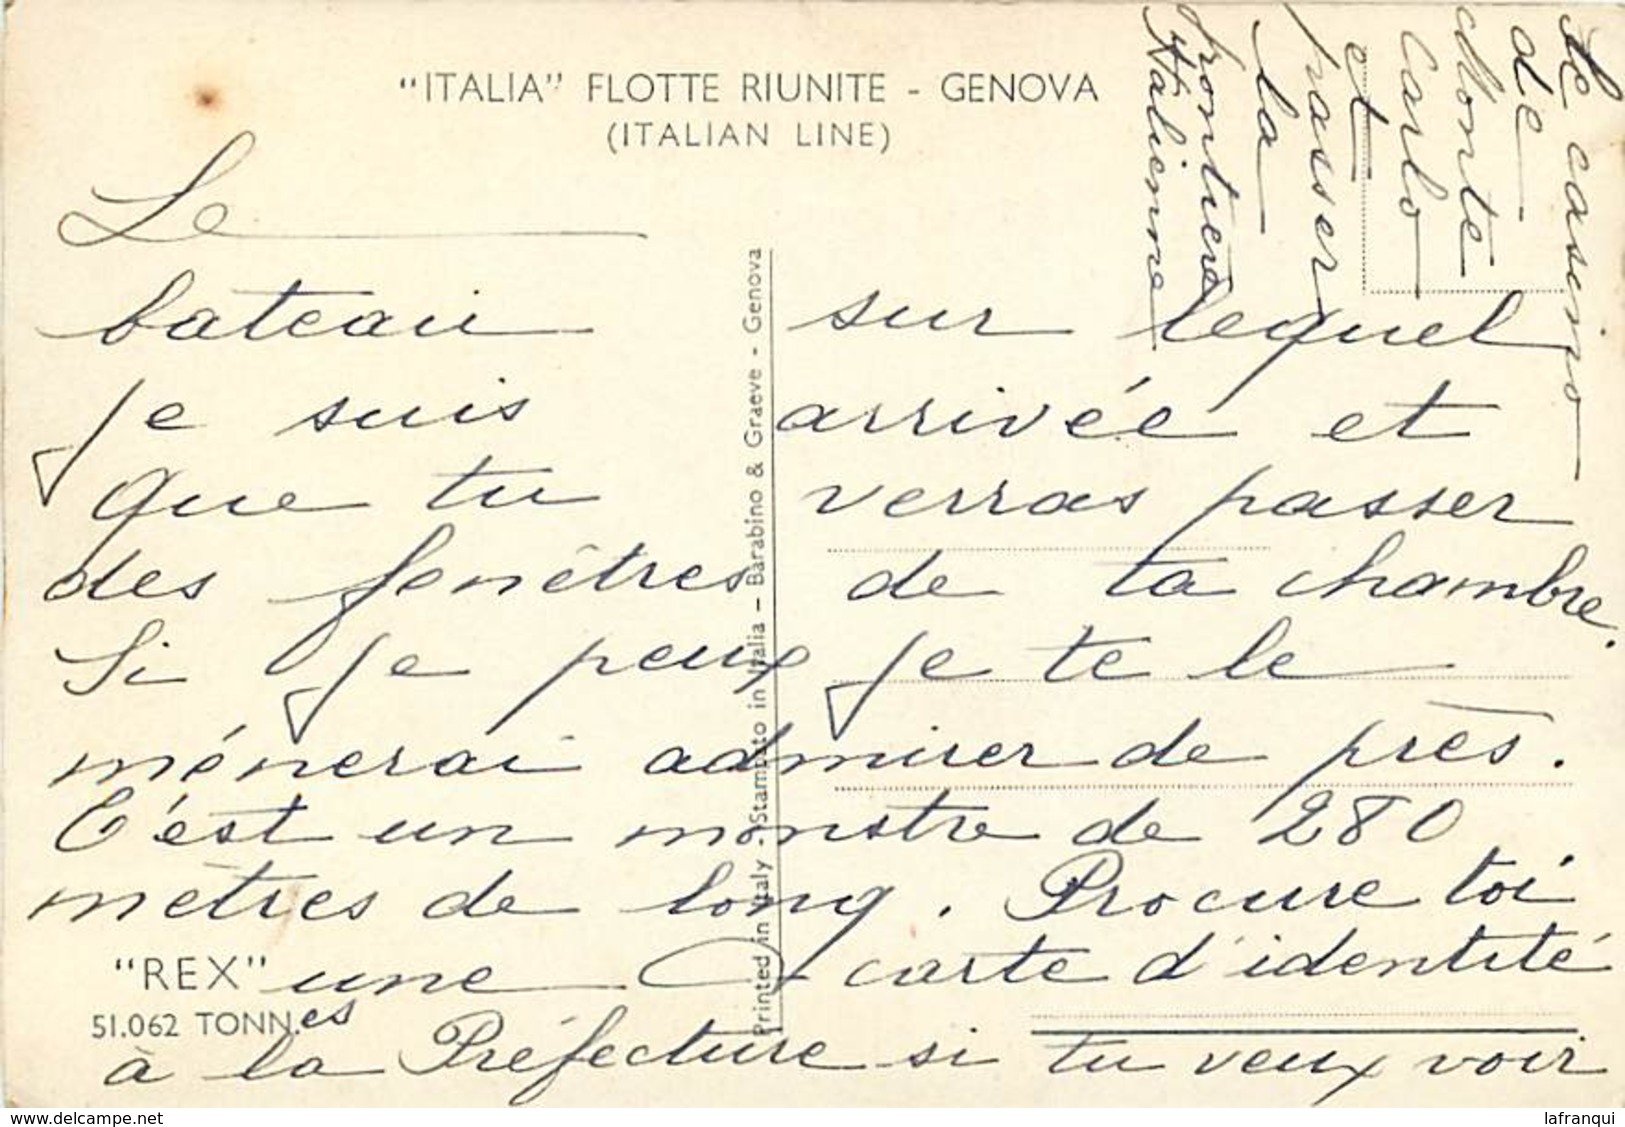 "ITALIA" FLOTTE RIUNITE - GENOVA
(ITALIAN LINE)
Le
bateau sur lequel
je suis arrivée et
que tu verras passer
des fenêtres de ta chambre.
Si je peux je te le
mènerai admirer de près.
C'est un monstre de 280
mètres de long. Procure toi
"REX" une carte d'identité
51.062 TONN.es
à la Préfecture si tu veux voir
Le casino
de
Monte
Carlo
et
passer
la
frontière
Italienne
Printed in Italy - Stampato in Italia - Barabino & Graeve - Genova
delcampe.net
lafranqui